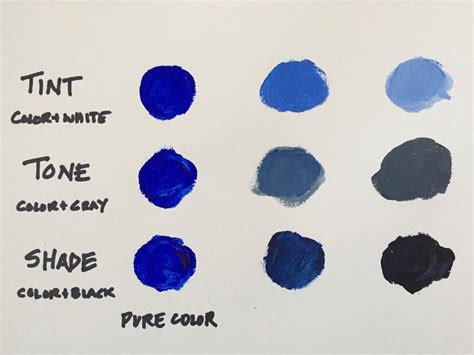 TINT
COLOR+WHITE
TONE
COLOR+GRAY
SHADE
COLOR+BLACK
PURE COLOR